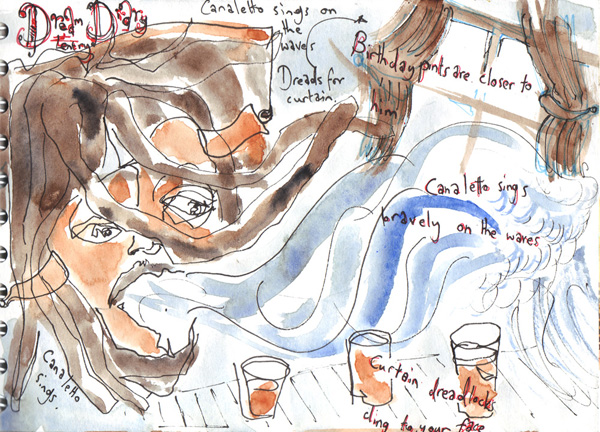 Dream Diary
Canaletto sings on
the
waves
Dreads for
curtain.
Birthday pints are closer to
him
Canaletto sings
bravely on the waves
Canaletto
sings.
Curtain dreadlocks
cling to your face